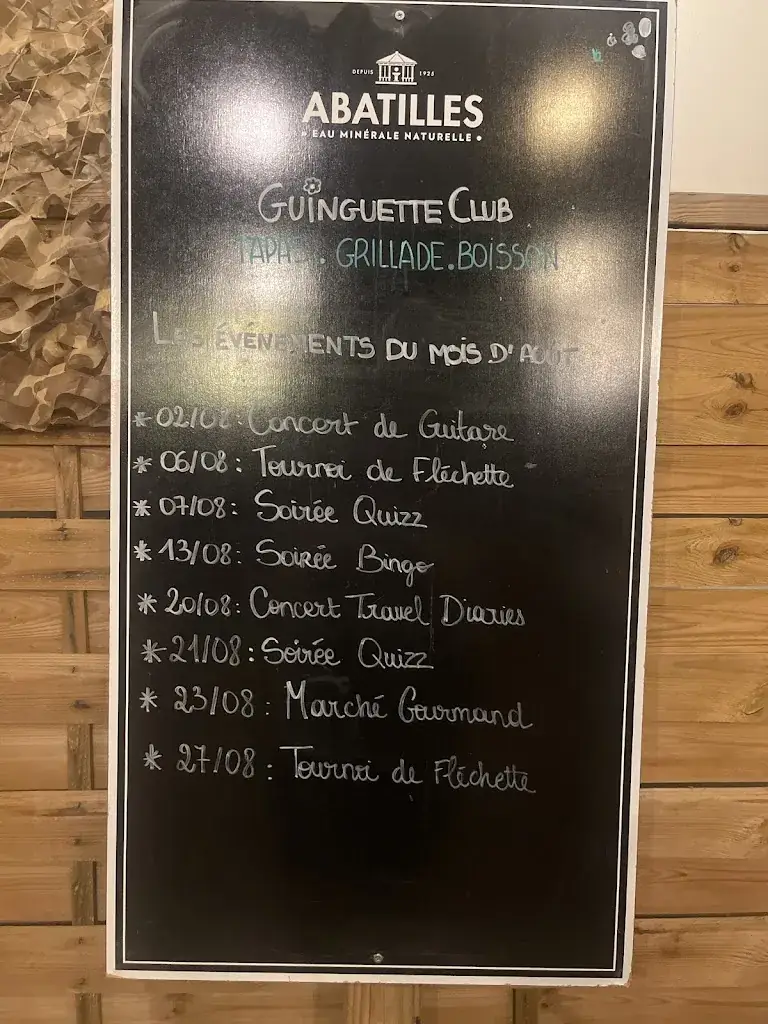 DEPUIS 1925
ABATILLES
• EAU MINÉRALE NATURELLE •
GUINGUETTE CLUB
TAPAS . GRILLADE . BOISSON
LES ÉVÉNEMENTS DU MOIS D'AOUT
* 02/08 : Concert de Guitare
* 06/08 : Tournoi de Fléchette
* 07/08 : Soirée Quizz
* 13/08 : Soirée Bingo
* 20/08 : Concert Travel Diaries
* 21/08 : Soirée Quizz
* 23/08 : Marché Gourmand
* 27/08 : Tournoi de Fléchette